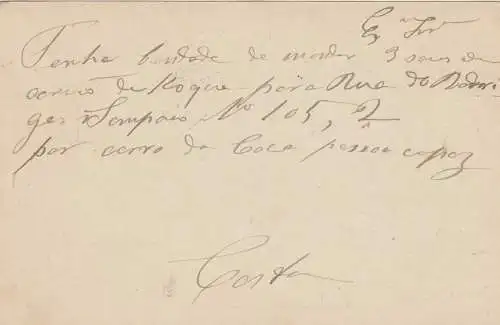 Exmo Snr
Tenha bondade de mandar 3 sacas de
carvão de Koque para Rua do Rodri
ges Sampaio, No 105, 2
por carro da Caza pessoa capaz
Costa